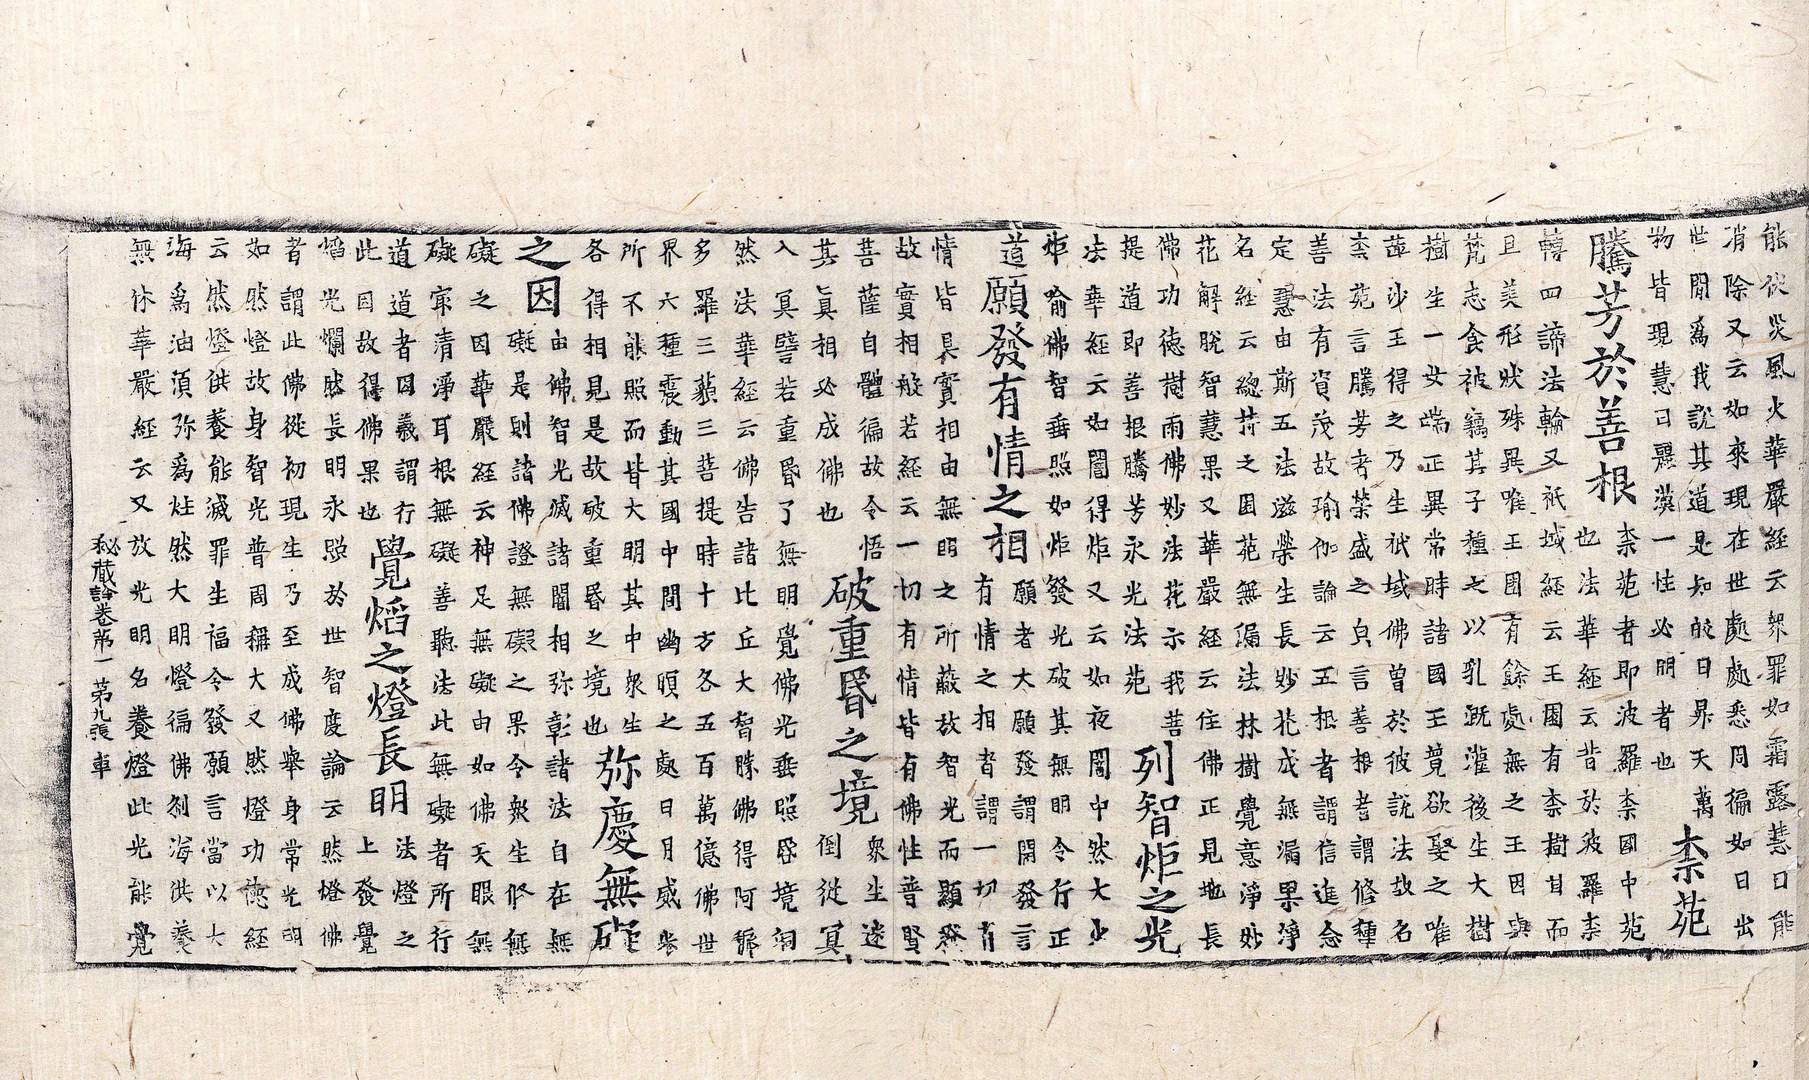 能彼災風火華嚴經云衆罪如霜露慧日能
消除又云如來現在世處處悉周徧如日出
世間爲我說其道是知皎日昇天萬
物皆現慧日麗漢一性必明者也 柰苑
騰芳於善根 柰苑者即波羅柰國中苑也法華經云昔於波羅柰
轉四諦法輪又祇域經云王園有柰樹甘而
且美形狀殊異唯王園有餘處無之王因與
梵志食被竊其子種之以乳漑灌後生大樹
樹生一女端正異常時諸國王競欲娶之唯
蓱沙王得之乃生祇域佛曾於彼説法故名
柰苑言騰芳者榮盛之皃言善根者謂修種
善法有資茂故瑜伽論云五根者謂信進念
定慧由斯五法滋榮生長妙花成無漏果淨
名經云總持之園苑無漏法林樹覺意淨妙
花解脫智慧果又華嚴經云住佛正見地長
佛功德樹雨佛妙法花示我菩
提道即善根騰芳永光法苑 列智炬之光
法華經云如闇得炬又云如夜闇中然大火
炬喻佛智垂照如炬發光破其無明令行正
道 願發有情之相 願者大願發謂開發言有情之相者謂一切有
情皆具實相由無明之所蔽故智光而顯發
故實相般若經云一切有情皆有佛性普賢
菩薩自體徧故令悟
其眞相必成佛也 破重昏之境 衆生迷倒從冥
入冥譬若重昏了無明覺佛光垂照昏境洞
然法華經云佛告諸比丘大智勝佛得阿耨
多羅三藐三菩提時十方各五百萬億佛世
界六種震動其國中間幽暝之處日月威光
所不能照而皆大明其中衆生
各得相見是故破重昏之境也 弥慶無礙
之因 由佛智光滅諸闇相弥彰諸法自在無礙是則諸佛證無礙之果令衆生修無
礙之因華嚴經云神足無礙由如佛天眼無
礙䆮清淨耳根無礙善聽法此無礙者所行
道道者因義謂行
此因故得佛果也 覺熖之燈長明 法燈之上發覺
熖光爛然長明永照於世智度論云然燈佛
者謂此佛從初現生乃至成佛舉身常光明
如然燈故身智光普周稱大又然燈功德經
云然燈供養能滅罪生福令發願言當以大
海爲油須弥爲炷然大明燈徧佛刹海供養
無休華嚴經云又放光明名養燈此光能覺
秘藏詮卷第一 第九張 車